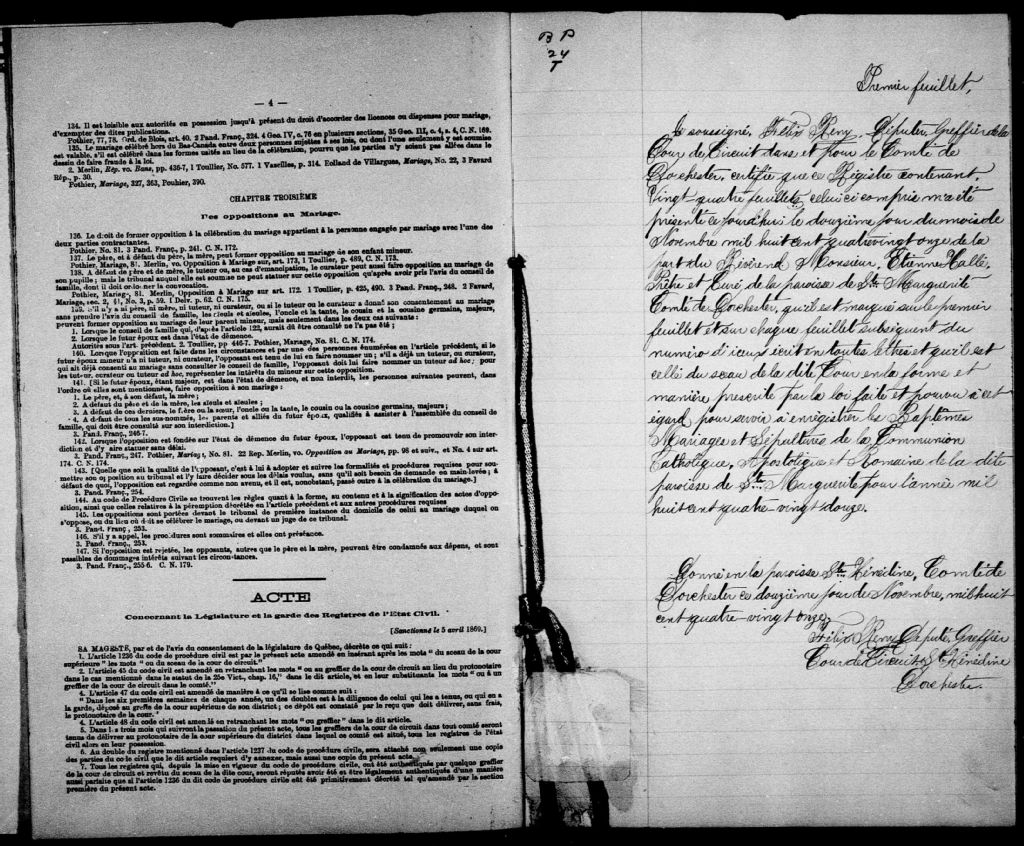 — 4 —
134. Il est loisible aux autorités en possession jusqu'à présent du droit d'accorder des licences ou dispenses pour mariage,
d'exempter des dites publications.
Pothier, 77, 78. Ord. de Blois, art. 40. 2 Pand. Franç., 324. 4 Geo. IV, c. 76 en plusieurs sections, 35 Geo. III, c. 4, s. 4, C. N. 169.
135. Le mariage célébré hors du Bas-Canada entre deux personnes sujettes à ses lois, ou dont l'une seulement y est soumise
est valable, s'il est célébré dans les formes usitées au lieu de la célébration, pourvu que les parties n'y soient pas allées dans le
dessein de faire fraude à la loi.
2. Merlin, Rép. vo. Bans, pp. 436-7, 1 Toullier, No. 577. 1 Vazeilles, p. 314. Rolland de Villargues, Mariage, No. 22, 3 Favard
Rép., p. 30.
Pothier, Mariage, 327, 363, Pouhier, 390.
CHAPITRE TROISIÈME
Des oppositions au Mariage.
136. Le droit de former opposition à la célébration du mariage appartient à la personne engagée par mariage avec l'une des
deux parties contractantes.
Pothier, No. 81. 3 Pand. Franç., p. 241. C. N. 172.
137. Le père, et à défaut du père, la mère, peut former opposition au mariage de son enfant mineur.
Pothier, Mariage, 81. Merlin, vo. Opposition à Mariage sur, art. 173, 1 Toullier, p. 489, C. N. 173.
138. A défaut de père et de mère, le tuteur ou, au cas d'émancipation, le curateur peut aussi faire opposition au mariage de
son pupille; mais le tribunal auquel elle est soumise ne peut statuer sur cette opposition qu'après avoir pris l'avis du conseil de
famille, dont il doit ordonner la convocation.
Pothier, Mariage, 81. Merlin, Opposition à Mariage sur art. 172. 1 Toullier, p. 425, 490. 3 Pand. Franç., 248. 2 Favard,
Mariage, sec. 2, §1, No. 3, p. 59. 1 Delv. p. 62. C. N. 175.
139. S'il n'y a ni père, ni mère, ni tuteur, ni curateur, ou si le tuteur ou le curateur a donné son consentement au mariage
sans prendre l'avis du conseil de famille, les aïeuls et aïeules, l'oncle et la tante, le cousin et la cousine germains, majeurs,
peuvent former opposition au mariage de leur parent mineur, mais seulement dans les deux cas suivants :
1. Lorsque le conseil de famille qui, d'après l'article 122, aurait dû être consulté ne l'a pas été ;
2. Lorsque le futur époux est dans l'état de démence.
Autorités sous l'art. précédent. 2. Toullier, pp 446-7. Pothier, Mariage, No. 81. C. N. 174.
140. Lorsque l'opposition est faite dans les circonstances et par une des personnes énumérées en l'article précédent, si le
futur époux mineur n'a ni tuteur, ni curateur, l'opposant est tenu de lui en faire nommer un ; s'il a déjà un tuteur, ou curateur,
qui ait déjà consenti au mariage sans consulter le conseil de famille, l'opposant doit lui faire nommer un tuteur ad hoc ; pour
les tuteur, curateur ou tuteur ad hoc, représenter les intérêts du mineur sur cette opposition.
141. [Si le futur époux, étant majeur, est dans l'état de démence, et non interdit, les personnes suivantes peuvent, dans
l'ordre où elles sont mentionnées, faire opposition à son mariage :
1. Le père, et, à son défaut, la mère ;
2. A défaut du père et de la mère, les aïeuls et aïeules ;
3. A défaut de ces derniers, le frère ou la sœur, l'oncle ou la tante, le cousin ou la cousine germains, majeurs ;
4. A défaut de tous les sus-nommés, les parents et alliés du futur époux, qualifiés à assister à l'assemblée du conseil de
famille, qui doit être consulté sur son interdiction.]
3. Pand. Franç., 246-7.
142. Lorsque l'opposition est fondée sur l'état de démence du futur époux, l'opposant est tenu de promouvoir son inter-
diction et d'y faire statuer sans délai.
3. Pand. Franç., 247. Pothier, Mariage, No. 81. 22 Rep. Merlin, vo. Opposition au Mariage, pp. 98 et suiv., et No. 4 sur art.
174. C. N. 174.
143. [Quelle que soit la qualité de l'opposant, c'est à lui à adopter et suivre les formalités et procédures requises pour sou-
mettre son opposition au tribunal et l'y faire décider sous les délais voulus, sans qu'il soit besoin de demande en main-levée ; à
défaut de quoi, l'opposition est regardée comme non avenu, et il est, nonobstant, passé outre à la célébration du mariage.]
3. Pand. Franç., 254.
144. Au code de Procédure Civile se trouvent les règles quant à la forme, au contenu et à la signification des actes d'oppo-
sition, ainsi que celles relatives à la péremption décrétée en l'article précédent et aux autres procédures requises
145. Les oppositions sont portées devant le tribunal de première instance du domicile de celui au mariage duquel on
s'oppose, ou du lieu où doit se célébrer le mariage, ou devant un juge de ce tribunal.
3. Pand. Franç., 253.
146. S'il y a appel, les procédures sont sommaires et elles ont préséance.
3. Pand. Franç., 253.
147. Si l'opposition est rejetée, les opposants, autres que le père et la mère, peuvent être condamnés aux dépens, et sont
passibles de dommages intérêts suivant les circonstances.
3. Pand. Franç., 255-6. C. N. 179.
ACTE
Concernant la Législature et la garde des Registres de l'Etat Civil.
[Sanctionné le 5 avril 1869.]
SA MAGESTÉ, par et de l'avis du consentement de la législature de Québec, décrète ce qui suit :
1. L'article 1236 du code de procédure civil est par le présent acte amendé en insérant après les mots "du sceau de la cour
supérieure" les mots "ou du sceau de la cour de circuit."
2. L'article 45 du code civil est amendé en retranchant les mots "ou au greffier de la cour de circuit au lieu du protonotaire
dans le cas mentionné dans le statut de la 25e Vict., chap. 16," dans le dit article, et en leur substituants les mots "ou à un
greffier de la cour de circuit dans le comté."
4. L'article 47 du code civil est amendé de manière à ce qu'il se lise comme suit :
Dans les six premières semaines de chaque année, un des doubles est à la diligence de celui qui les a tenus, ou qui en a
la garde, déposé au greffe de la cour supérieure de son district ; ce dépôt est constaté par le reçu que doit délivrer, sans frais,
le protonotaire de la cour.
4. L'article 48 du code civil est amendé en retranchant les mots "ou greffier" dans le dit article.
5. Dans les trois mois qui suivront la passation du présent acte, tous les greffiers de la cour de circuit dans tout comté seront
tenus de délivrer au protonotaire de la cour supérieure du district dans lequel ce comté est situé, tous les registres de l'état
civil alors en leur possession.
6. Au double du registre mentionné dans l'article 1237 du code de procédure civile, sera attaché non seulement une copie
des parties du code civil que le dit article requiert d'y annexer, mais aussi une copie du présent acte.
7. Tous les registres qui, depuis la mise en vigueur du code de procédure civile, ont été authentiqués par quelque greffier
de la cour de circuit et revêtu du sceau de la dite cour, seront réputés avoir été en être légalement authentiqués d'une manière
aussi parfaite que si l'article 1236 du dit code de procédure civile eût été primitivement décrété tel qu'amendé par la section
première du présent acte.
B P
24
T
Premier feuillet.
Je soussigné, Félix Remy, Député Greffier de la
Cour de Circuit dans et pour le Comté de
Dorchester, certifie que ce Régistre contenant,
Vingt-quatre feuillets, celui ci compris m'a été
présenté ce jourd'hui le douzième jour du mois de
Novembre mil huit cent quatre vingt onze de la
part du Révérend Monsieur, Etienne Hallé,
Prêtre et Curé de la paroisse de Ste Marguerite
Comté de Dorchester, qu'il est marqué sur le premier
feuillet et sur chaque feuillet subséquent du
numéro d'iceux écrit en toutes lettres et qu'il est
celle du sceau de la dite Cour en la forme et
manière prescrite par la loi faite et pourvu à cet
égard, pour servir à enregistrer les Baptêmes
Mariages et Sépultures de la Communion
Catholique, Apostolique et Romaine de la dite
paroisse de Ste Marguerite pour l'année mil
huit cent quatre-vingt douze.
Donné en la paroisse Ste Hénédine, Comté de
Dorchester ce douzième jour de Novembre, mil huit
cent quatre-vingt onze,
Félix Remy Député Greffier
Cour de Circuit Ste Hénédine
Dorchester.